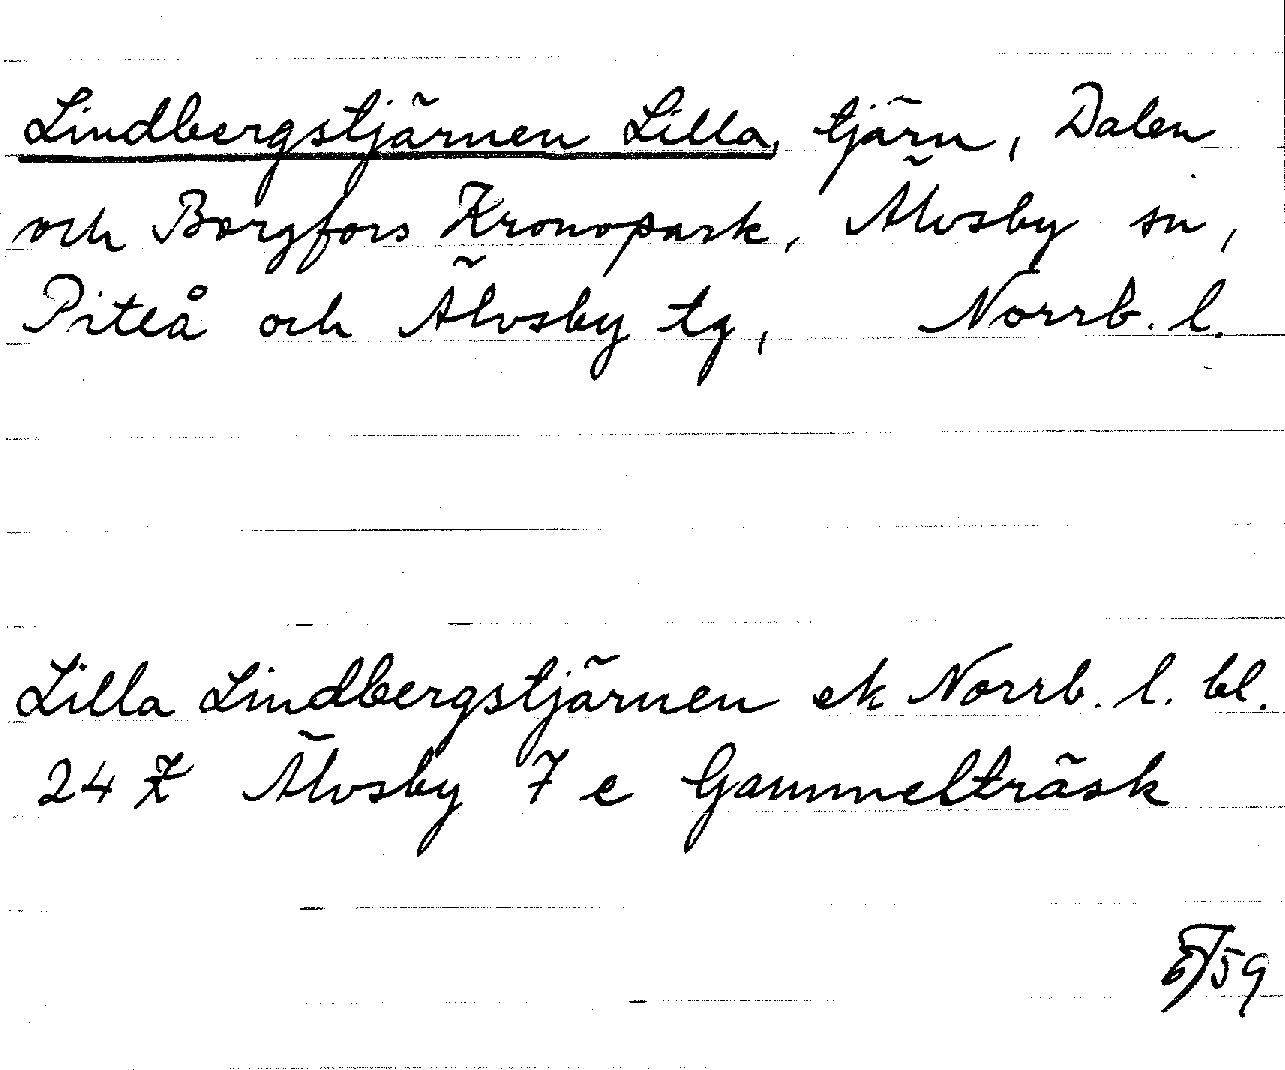 Lindbergstjärnen Lilla, tjärn, Dalen
och Borgfors Kronopark, Älvsby sn,
Piteå och Älvsby tg, Norrb. l.
Lilla Lindbergstjärnen ek Norrb. l. bl.
24 K Älvsby 7 e Gammelträsk
/59